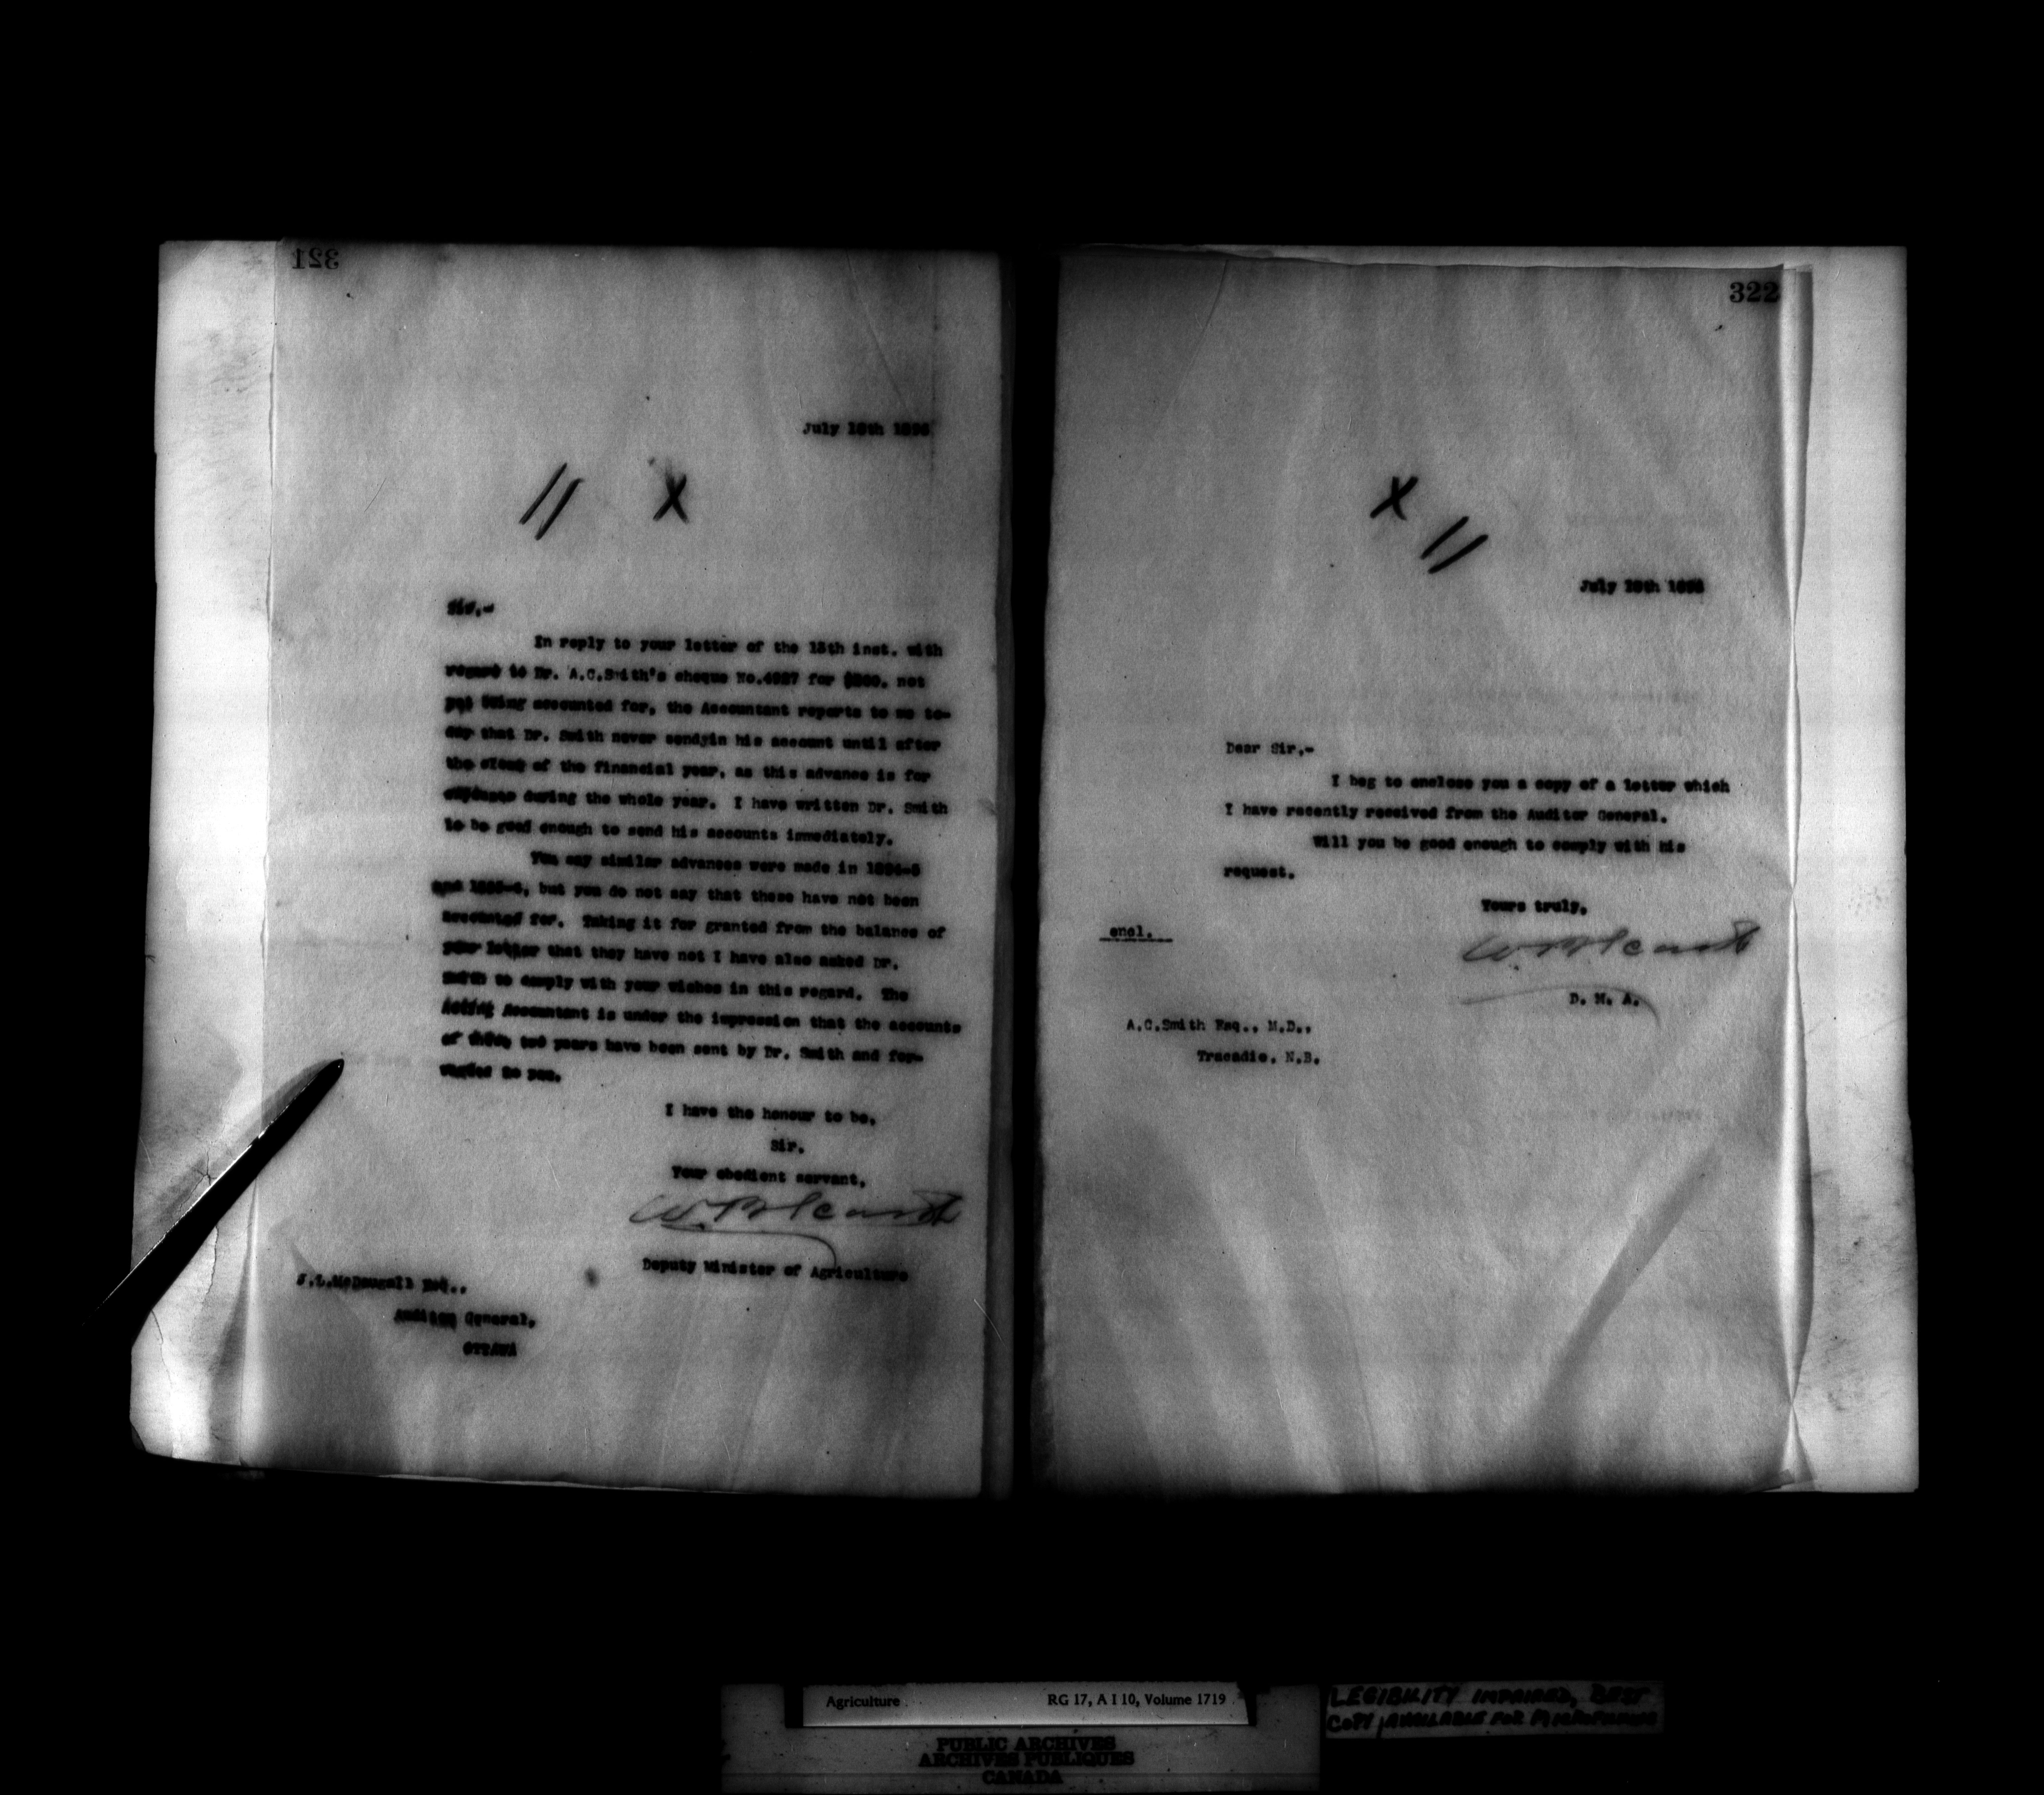 321
July 18th 1896
11 X
Sir,-
In reply to your letter of the 13th inst. with
regard to Dr. A.C.Smith's cheque No.4927 for $200. not
yet being accounted for, the Accountant reports to me to-
day that Dr. Smith never sends in his account until after
the close of the financial year, as this advance is for
expenses during the whole year. I have written Dr. Smith
to be good enough to send his accounts immediately.
You say similar advances were made in 1894-5
and 1895-6, but you do not say that these have not been
accounted for. Taking it for granted from the balance of
your letter that they have not I have also asked Dr.
Smith to comply with your wishes in this regard. The
Acting Accountant is under the impression that the accounts
of these two years have been sent by Dr. Smith and for-
warded to you.
I have the honour to be,
Sir,
Your obedient servant,
W. B. Scarth
Deputy Minister of Agriculture
J.L.McDougall Esq.,
Auditor General,
OTTAWA
322
X 11
July 18th
Dear Sir,-
I beg to enclose you a copy of a letter which
I have recently received from the Auditor General.
Will you be good enough to comply with his
request.
Yours truly,
encl.
W B Scarth
D. M. A.
A.C.Smith Esq., M.D.,
Tracadie, N.B.
Agriculture RG 17, A I 10, Volume 1719
LEGIBILITY IMPAIRED, BEST
COPY AVAILABLE FOR MICROFILMING
PUBLIC ARCHIVES
ARCHIVES PUBLIQUES
CANADA